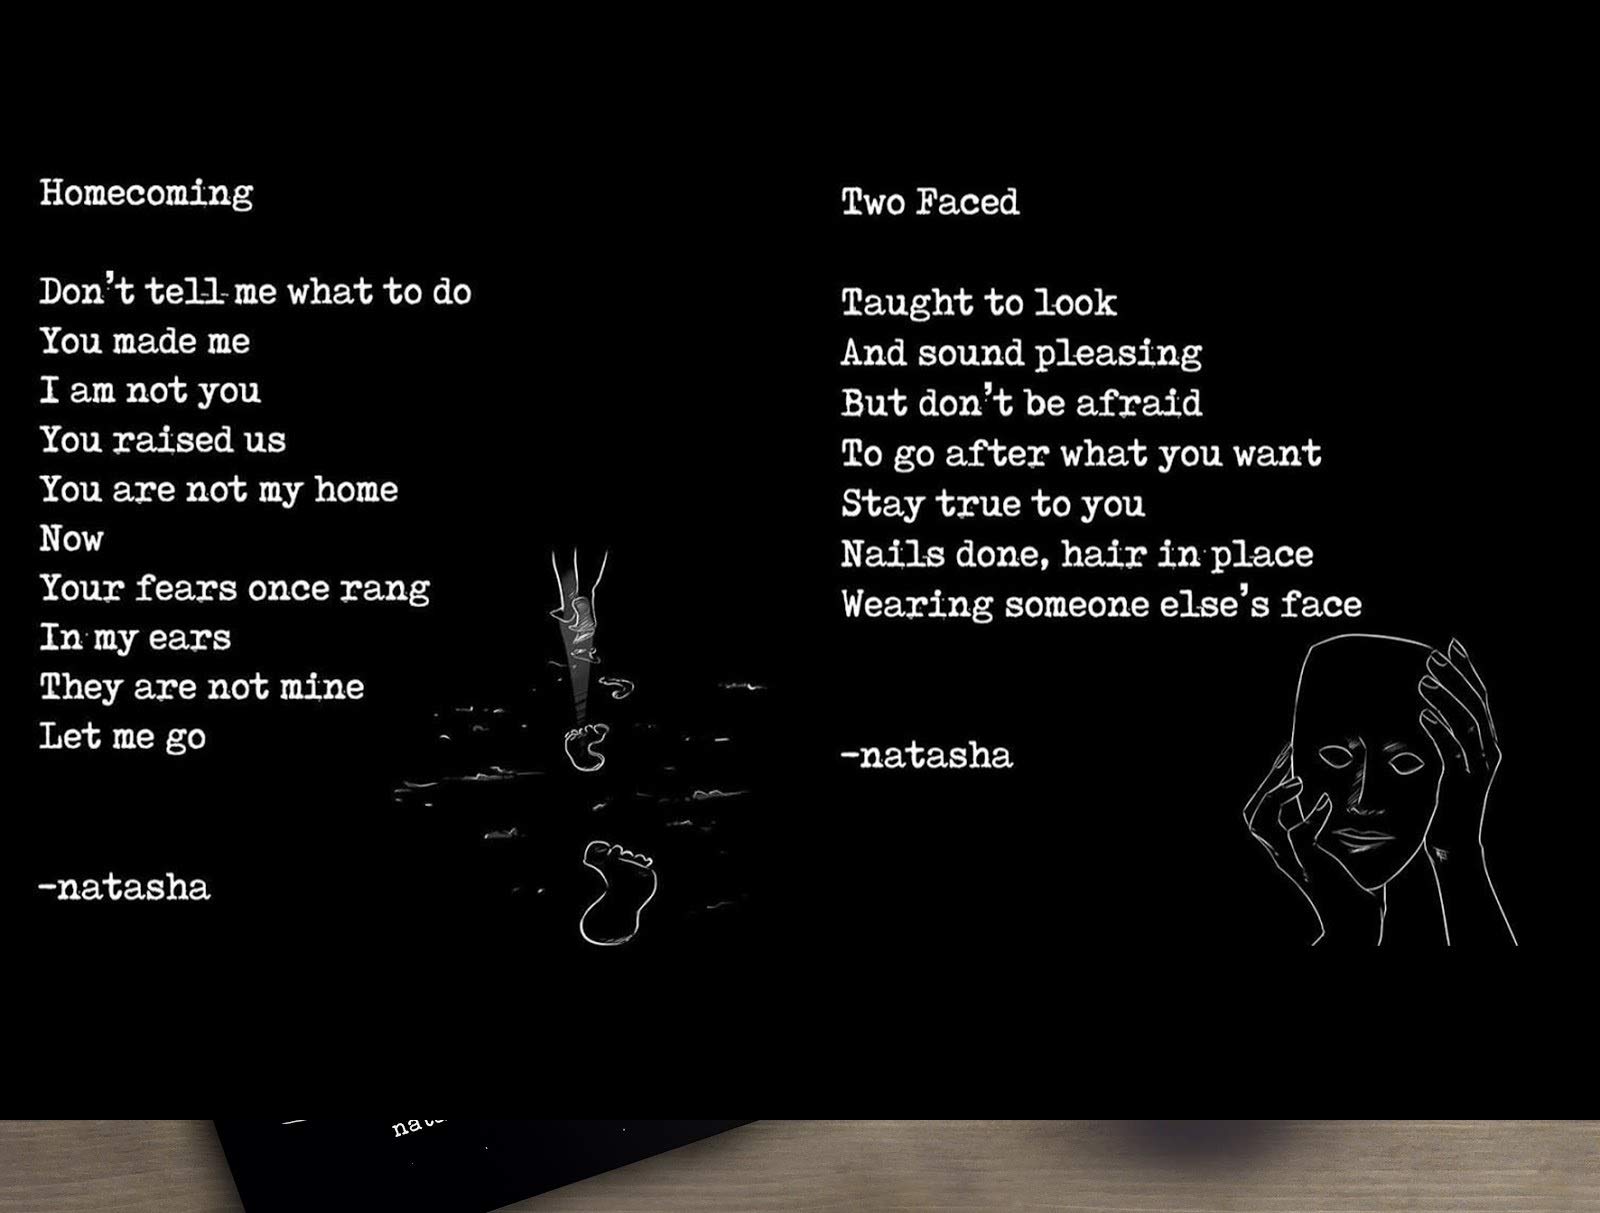 Homecoming
Don't tell me what to do
You made me
I am not you
You raised us
You are not my home
Now
Your fears once rang
In my ears
They are not mine
Let me go
-natasha
Two Faced
Taught to look
And sound pleasing
But don't be afraid
To go after what you want
Stay true to you
Nails done, hair in place
Wearing someone else's face
-natasha